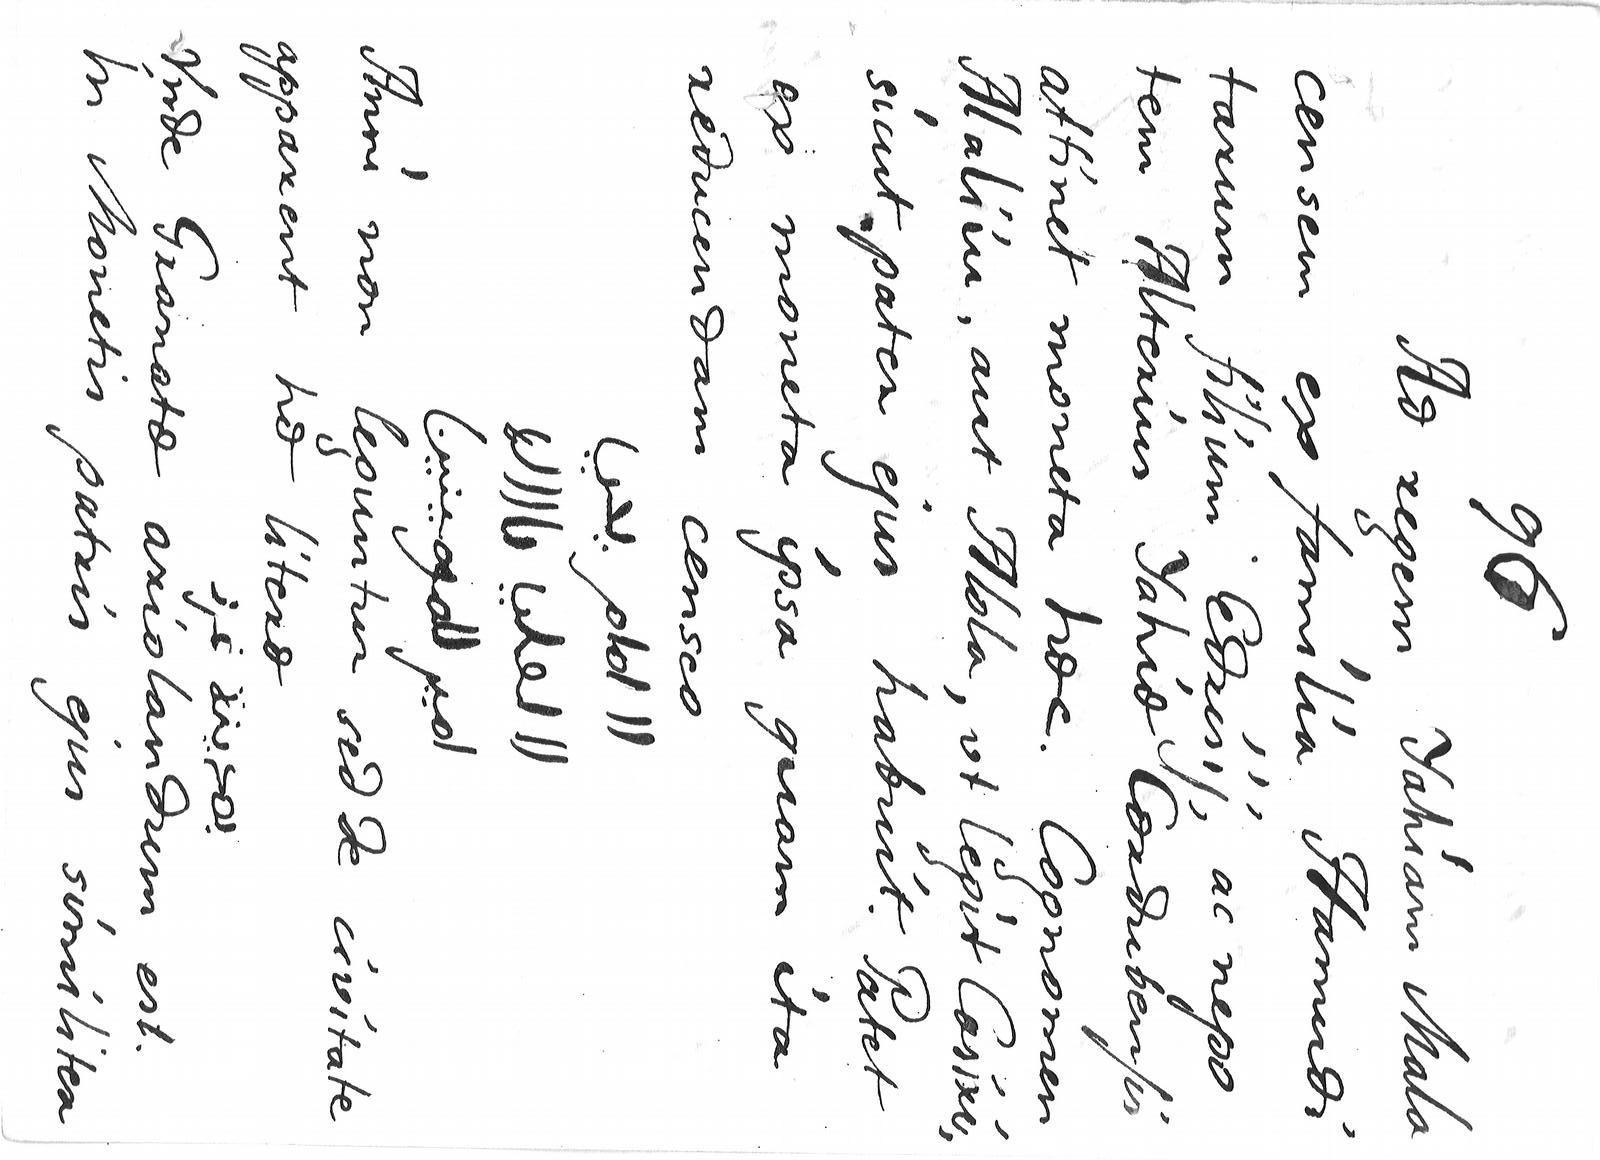 96
Ad regem Jahiam Mala
censem ex familia Hamudi
tarum filium Edrisij, ac nepo
tem Alterius Jahiae Cordubensis
attinet moneta haec. Cognomen
Alaliu, aut Alola, vt legit Casiri,
sicut pater ejus habuit. Patet
ex moneta ipsa quam ita
reducendam censeo
Anni non leguntur sed de civitate
apparent hae literae
Vnde Granatae est.
In Monetis patris ejus similiter